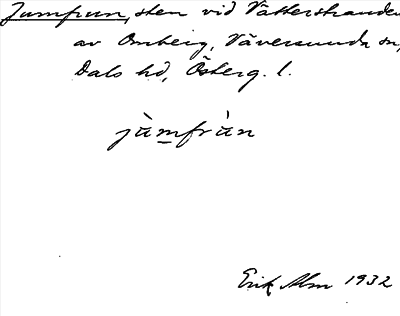 Jumfrun, sten vid Vätterstranden
av Omberg, Väversunda sn,
Dals hd, Österg. l.
jùmfrùn
Erik Alm 1932